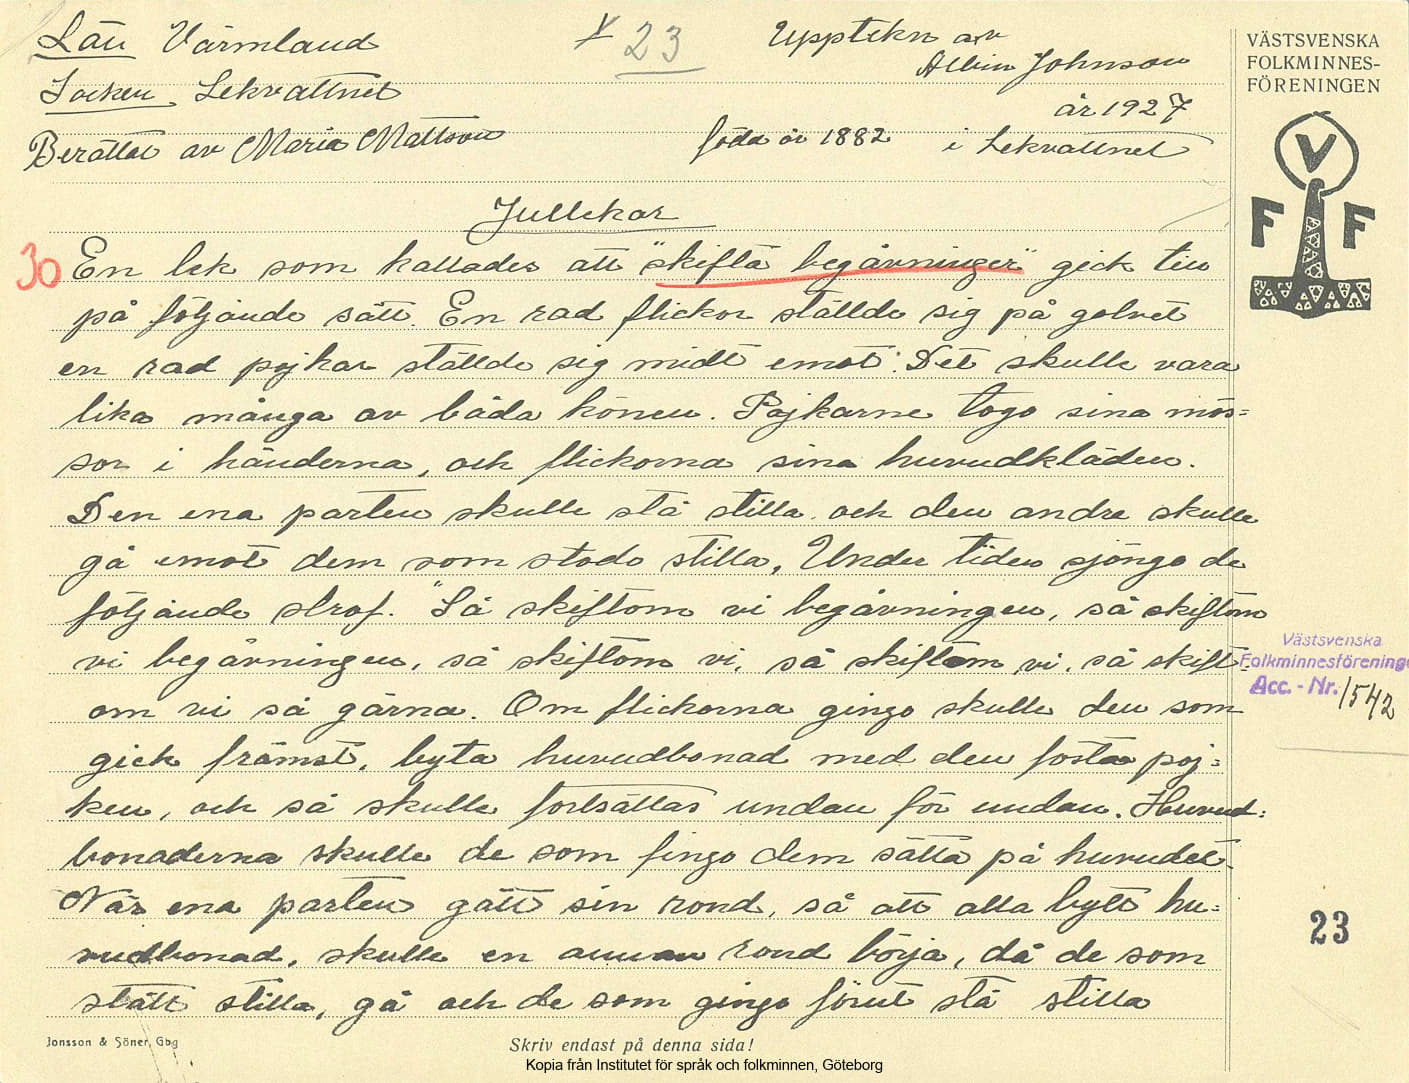 Län Värmland
Socken Lekvattnet
Berättat av Maria Mattson
x 23
Upptekn av
Albin Johnson
år 1927
född år 1882 i Lekvattnet
VÄSTSVENSKA
FOLKMINNES-
FÖRENINGEN
V
F F
Jullekar
30 En lek som kallades att "skifta begåvninger" gick till
på följande sätt. En rad flickor ställde sig på golvet
en rad pojkar ställde sig midt emot. Det skulle vara
lika många av båda könen. Pojkarne togo sina mös=
sor i händerna, och flickorna sina huvudkläden.
Den ena parten skulle stå stilla och den andra skulle
gå emot dem som stodo stilla, Under tiden sjöngo de
följande strof. "Så skiftom vi begåvningen, så skiftom
vi begåvningen, så skiftom vi, så skiftom vi, så skift=
om vi så gärna. Om flickorna gingo skulle den som
gick främst, byta huvudbonad med den första poj=
ken, och så skulle fortsättas undan för undan. Huvud=
bonaderna skulle de som fingo dem sätta på huvudet.
När ena parten gått sin rond, så att alla bytt hu=
vudbonad, skulle en annan rond börja, då de som
stått stilla, gå och de som gingo förut stå stilla
Västsvenska
Folkminnesförening
Acc. - Nr. 1542
23
Jonsson & Söner, Gbg
Skriv endast på denna sida!
Kopia från Institutet för språk och folkminnen, Göteborg